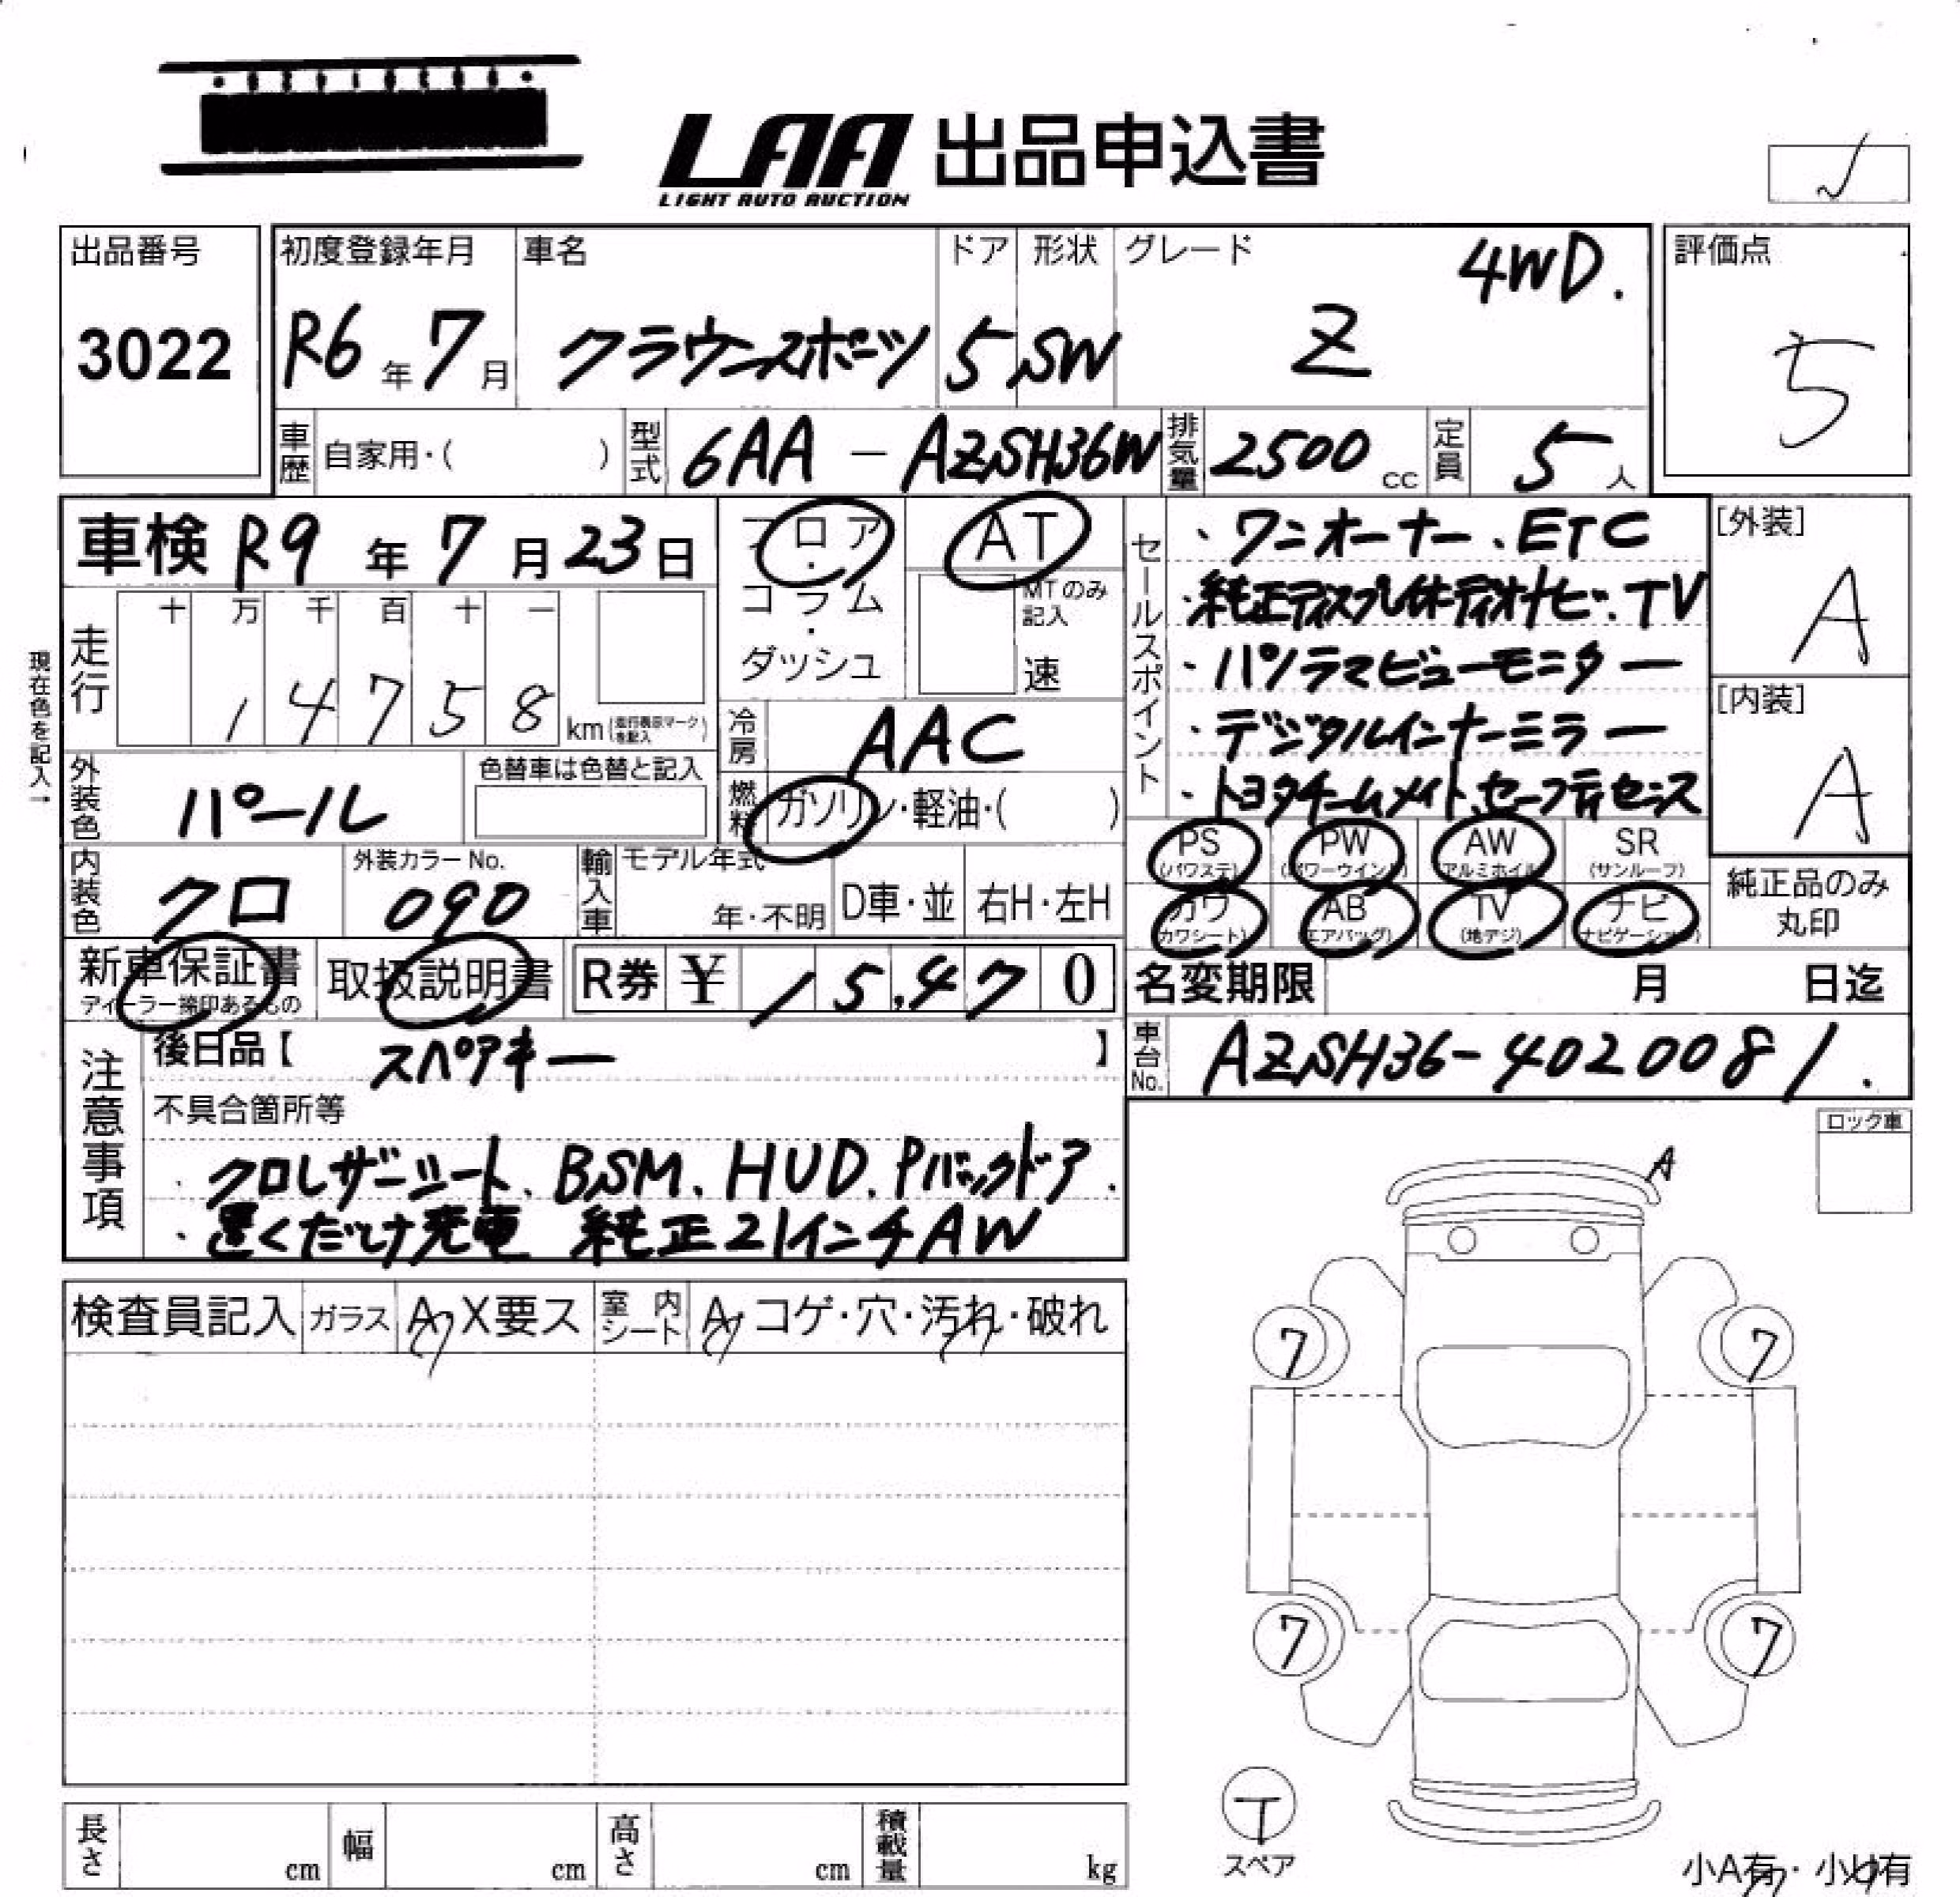 LAA 出品申込書
LIGHT AUTO AUCTION
出品番号
3022
初度登録年月
R6年7月
車名
クラウンスポーツ
ドア
5
形状
SW
グレード
4WD.
Z
評価点
5
車歴 自家用・( )
型式 6AA-AZSH36W
排気量 2500cc
定員 5人
車検 R9年7月23日
フロア・コラム・ダッシュ
AT
MTのみ記入
速
現在色を記入→
走行
十 万 千 百 十 一
1 4 7 5 8 km(走行表示マークを記入)
冷房 AAC
外装色 パール
色替車は色替と記入
燃料 ガソリン・軽油・( )
内装色 クロ
外装カラーNo. 090
輸入車
モデル年式
年・不明
D車・並
右H・左H
セールスポイント
・ワンオーナー、ETC
・純正ディスプレイオーディオナビ・TV
・パノラマビューモニター
・デジタルインナーミラー
・トヨタチームメイト、セーフティセンス
[外装]
A
[内装]
A
PS (パワステ)
PW (パワーウインド)
AW (アルミホイル)
SR (サンルーフ)
カワ (カワシート)
AB (エアバッグ)
TV (地デジ)
ナビ (ナビゲーション)
純正品のみ丸印
新車保証書
ディーラー捺印あるもの
取扱説明書
R券 ¥ 15,470
名変期限 月 日迄
車台No. AZSH36-4020081.
注意事項
後日品【 スペアキー 】
不具合箇所等
・クロレザーシート、BSM、HUD、Pバックドア.
・置くだけ充電 純正21インチAW
ロック車
A
検査員記入
ガラス A X要ス
室内シート A コゲ・穴・汚れ・破れ
7 7
7 7
T
スペア
長さ cm
幅 cm
高さ cm
積載量 kg
小A有・小U有